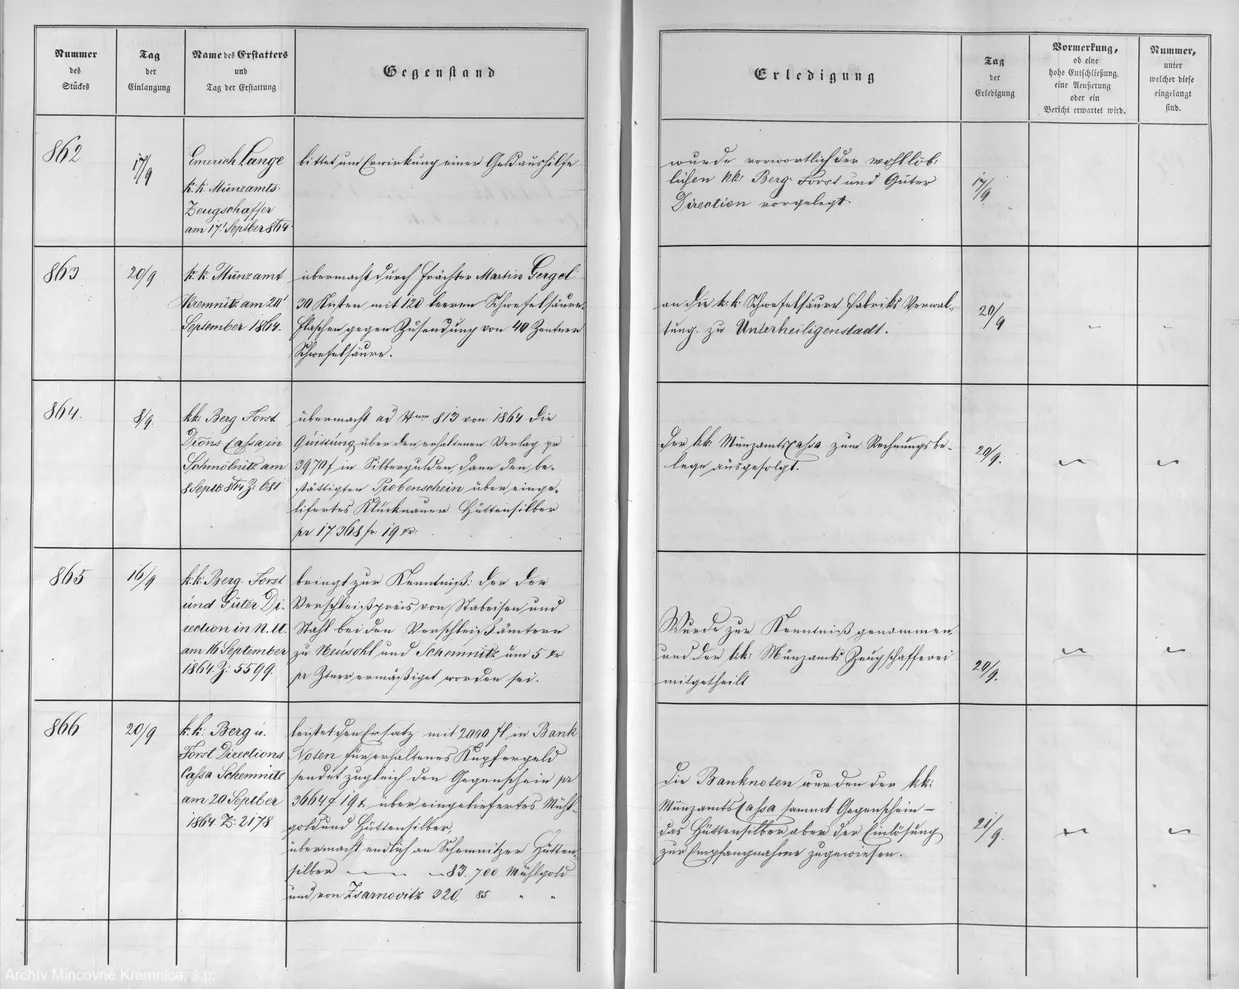 Nummer
des
Stückes
Tag
der
Einlangung
Name des Erstatters
und
Tag der Erstattung
Gegenstand
Erledigung
Tag
der
Erledigung
Vormerkung,
ob eine
hohe Entschließung,
eine Aeußerung
oder ein
Bericht erwartet wird.
Nummer,
unter
welcher diese
eingelangt
sind.
862
17/9
Emerich Lange
k. k. Münzamts
Zeugschaffer
am 17t Septber 864
bittet um Erwirkung einer Geldaushilfe
wurde vorwortlich der wohllöb-
lichen kk: Berg Forst und Güter
Direction vorgelegt.
17/9
863
20/9
k. k. Münzamt
Kremnitz am 20t
September 1864.
übermacht durch Frächter Martin Gergel
30 Kisten mit 120 leeren Schwefelsäure
flaschen gegen Zusendung von 40 Zentnern
Schwefelsäure.
an die k. k. Schwefelsäure Fabriks Verwal-
tung zu Unterheiligenstadt.
20/9
864.
8/9.
kk Berg Forst
Dions Cassa in
Schmöllnitz am
8 Septb. 864 Z: 681
übermacht ad Num 813 von 1864 die
Quittung über den erhaltenen Verlag pr
3970 f in Silbergulden dann den be-
stättigten Probenschein über einge-
liefertes Hüttensilber
pr 17368 f 19 xr.
Der kk Münzamts Cassa zum Rechnungsbe-
lege ausgefolgt.
20/9.
865
16/9
k. k. Berg Forst
und Güter Di-
rection in N. U.
am 16 September
1864 Z: 5599.
bringt zur Kenntniß: der der
Verschleißpreis von Stabeisen und
Stahl bei den Verschleißämtern
zu Neusohl und Schemnitz um 5 xr
pr Ztner ermäßiget worden sei.
Wurde zur Kenntniß genommen
und der kk: Münzamts Zeugschafferei
mitgetheilt
20/9.
866
20/9
k. k. Berg u.
Forst Directions
Cassa Schemnitz
am 20 Septber
1864 Z: 2178
leistet den Ersatz mit 2000 fl in Bank
Noten für erhaltenes Kupfergeld
sendet zugleich den Gegenschein pr
3664 f 19 x über eingeliefertes Mühl-
gold und Hüttensilber,
übermacht endlich an Schemnitzer Hütten-
silber 83.700 Mühlgold
und von Zsarnovitz 320, 85 " "
Die Banknoten wurden der kk:
Münzamts Cassa sammt Gegenschein –
das Hüttensilber aber der Einlösung
zur Empfangnahme zugewiesen.
21/9.
Archív Mincovne Kremnica, š.p.